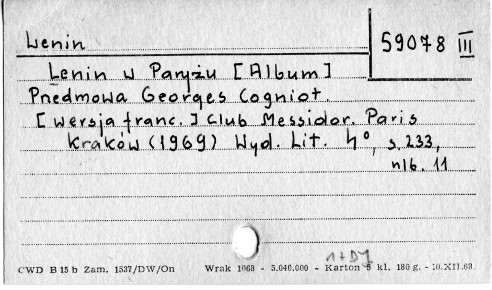 Lenin
59078 III
Lenin w Paryżu [Album]
Przedmowa Georges Cogniot.
[wersja franc.] Club Messidor. Paris
Kraków (1969) Wyd. Lit. 4°, s. 233,
nlb. 11
1+DJ
CWD B 15 b Zam. 1537/DW/On Wrak 1068 - 5.040.000 - Karton 5 kl. 180 g. - 10.XII.68.